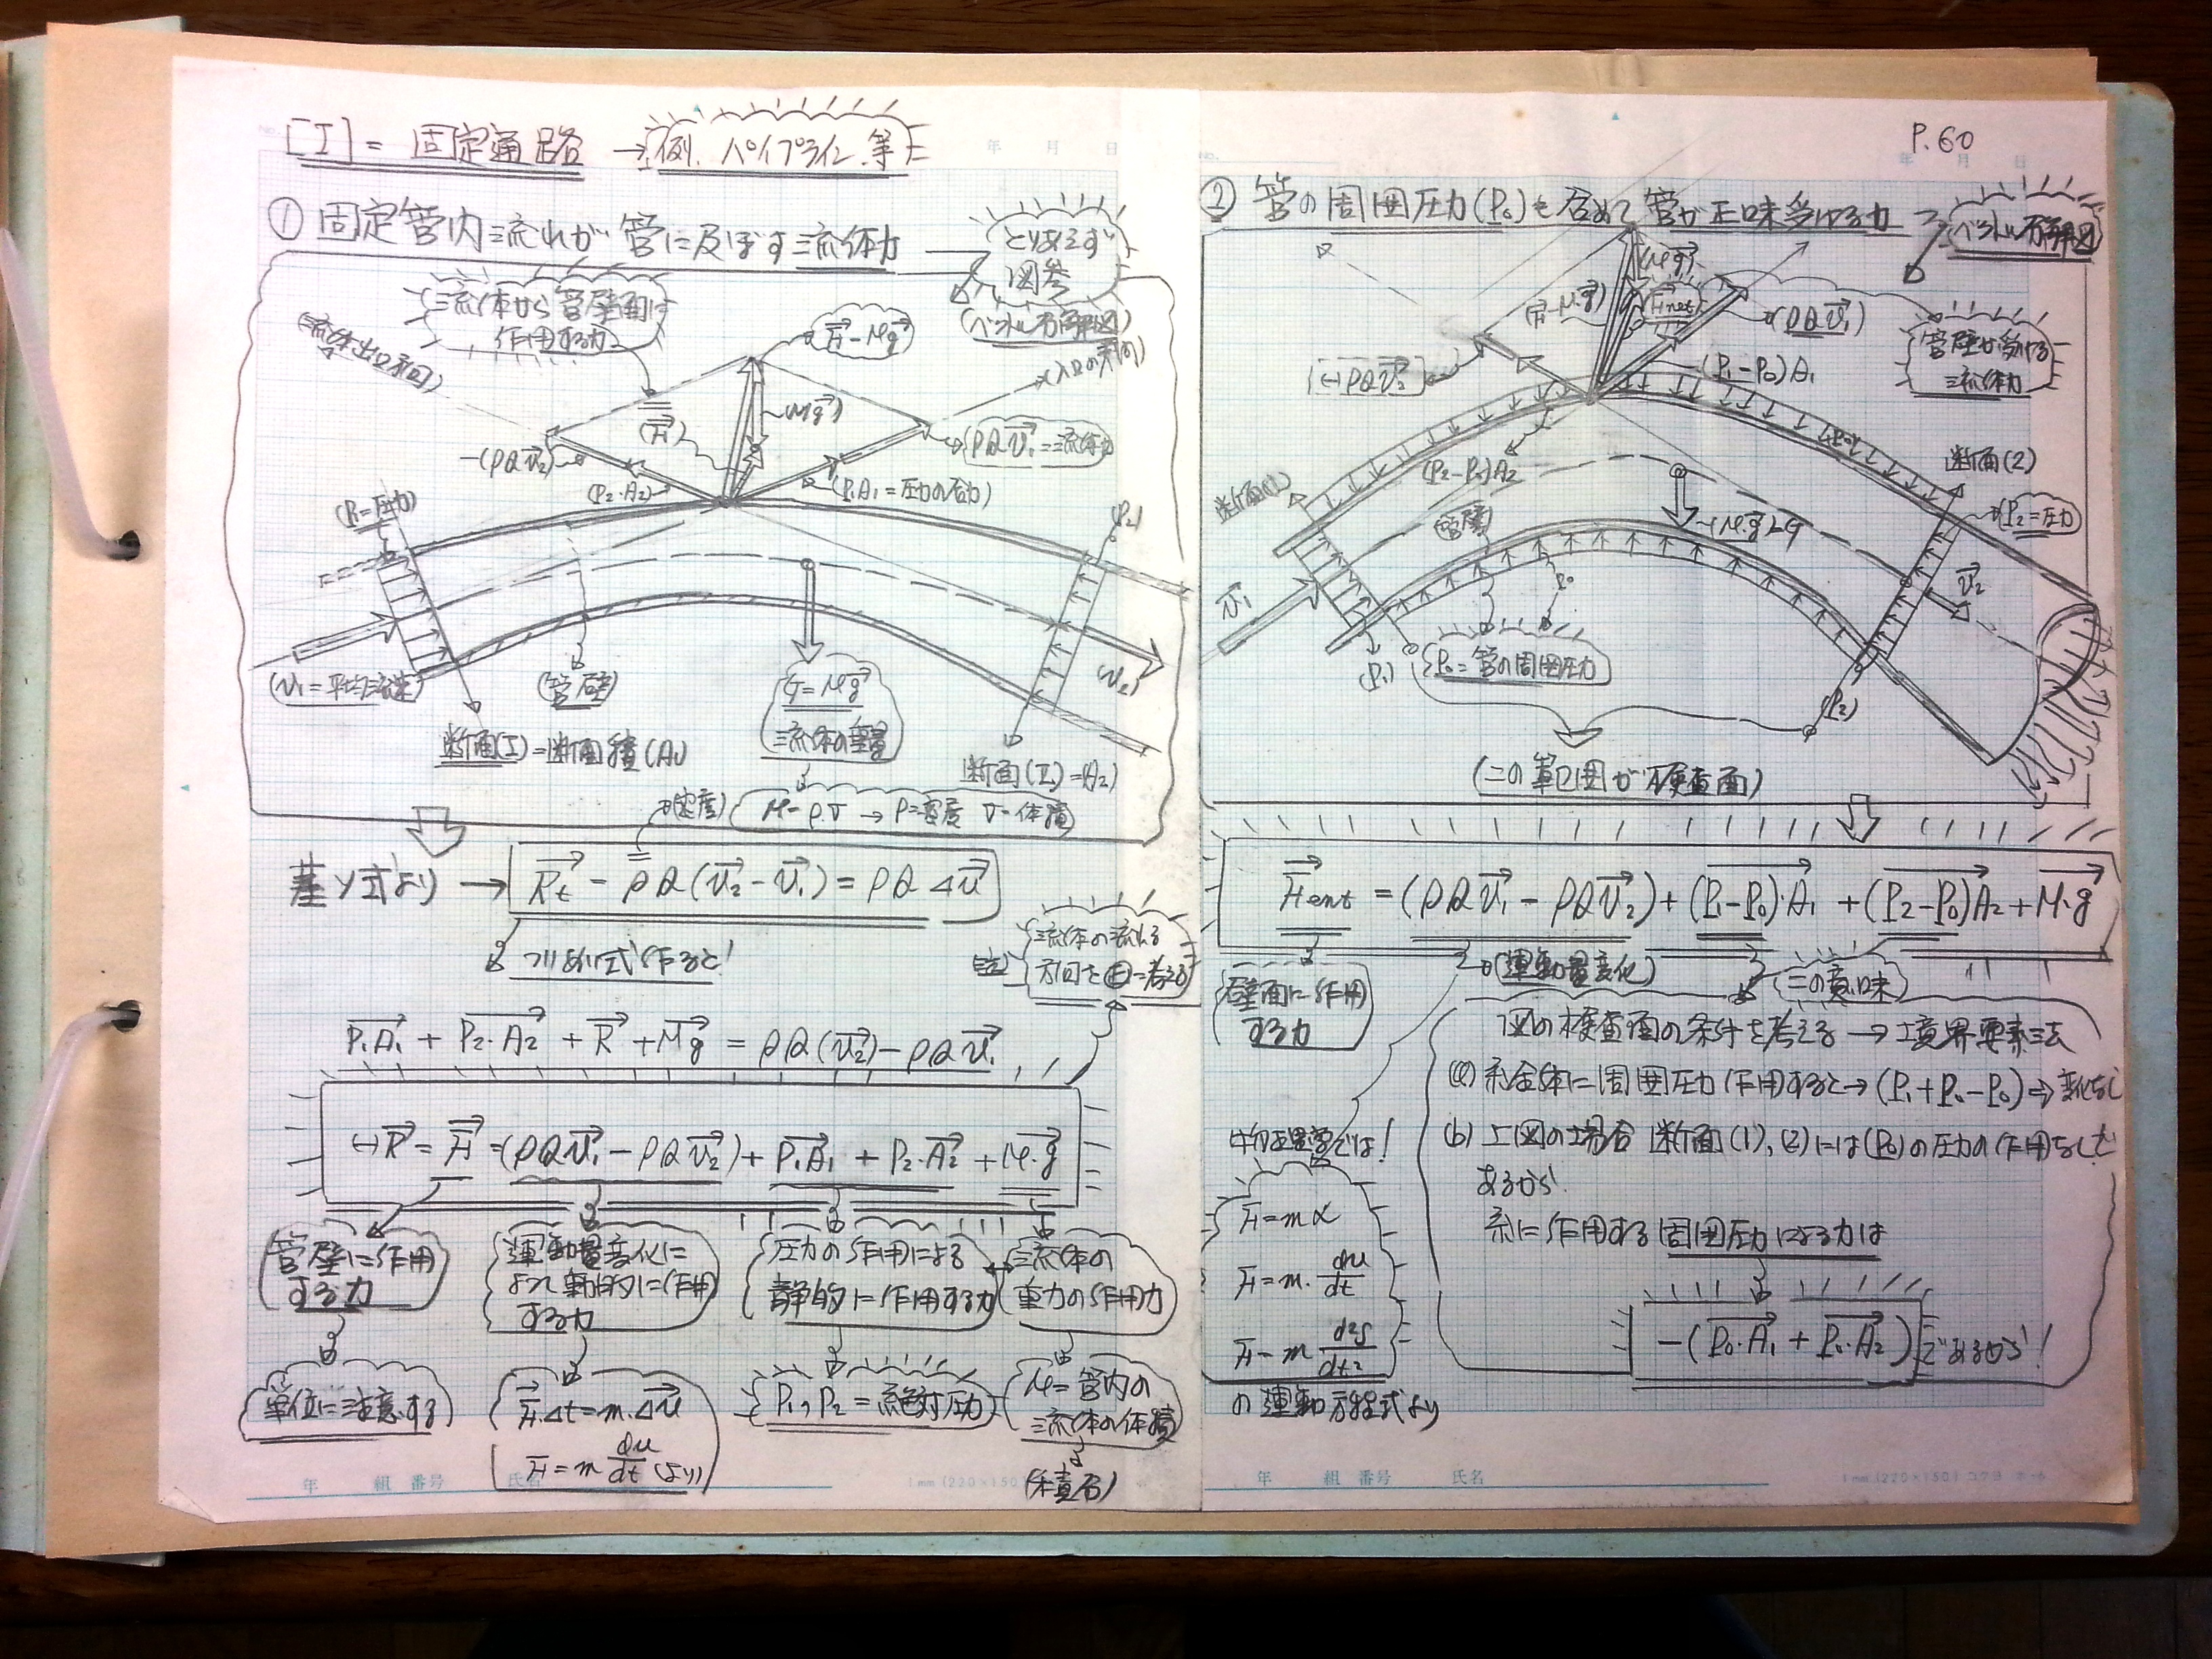 [I] = 固定通路 → 例. パイプライン 等
① 固定管内流れが管に及ぼす流体力
とりあえず
図参
(ベクトル分解図)
流体から管壁面に
作用する力
(流体出口方向)
F - Mg
(入口の方向)
(Mg)
(F)
-(ρQv₂)
(P₂·A₂)
(P₁A₁=圧力の合力)
ρQv₁=流体力
(P₁=圧力)
(P₂)
(v₁=平均流速)
(管壁)
G=Mg
流体の重量
(v₂)
断面(I)=断面積(A₁)
断面(II)=(A₂)
(密度)
M=ρ.V → ρ=密度 V=体積
基ソ式より → Rt = ρQ(v₂-v₁) = ρQΔv
つりあい式作ると!
流体の流れる
方向を⊕=考える
P₁A₁ + P₂.A₂ + R + Mg = ρQ(v₂)-ρQv₁
(-)R = F =(ρQv₁-ρQv₂)+P₁A₁+P₂.A₂+M.g
管壁に作用
する力
運動量変化に
よって動的に作用
する力
圧力の作用による
静的に作用する力
流体の
重力の作用力
単位に注意する
F.Δt=m.Δv
F=m du/dt (より)
P₁, P₂=絶対圧力
M=管内の
流体の体積
(積石)
年 組 番号 氏名
P.60
年 月 日
② 管の周囲圧力(P₀)も含めて管が正味受ける力
ベクトル分解図
(Mg)
(F-M.g)
Fnet
(ρQv₁)
(-)ρQv₂
(P₁-P₀)A₁
管壁が受ける
流体力
(P₀)
断面(1)
(P₂-P₀)A₂
断面(2)
P₂=圧力
(管壁)
M.g=G
P₀
v₁
v₂
(P₁)
P₀=管の周囲圧力
(P₂)
(この範囲が検査面)
Fent = (ρQv₁-ρQv₂)+(P₁-P₀).A₁+(P₂-P₀)A₂+M.g
壁面に作用
する力
(運動量変化)
この意味
図の検査面の条件を考える → 境界要素法
(a) 系全体に周囲圧力作用すると→(P₁+P₀-P₀)⇒変化なし
(b) 上図の場合 断面(1),(2)には(P₀)の圧力の作用なしで
あるから
系に作用する周囲圧力による力は
-(P₀.A₁ + P₀.A₂) であるから!
物理学では!
F=mα
F=m. du/dt
F=m d²s/dt²
の運動方程式より
年 組 番号 氏名
1mm(220×150)コクヨ ホ-6